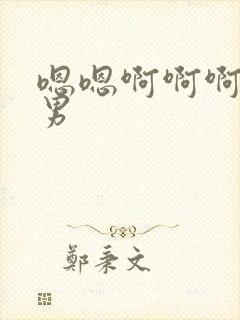 嗯嗯啊啊啊
男
鄭秉文